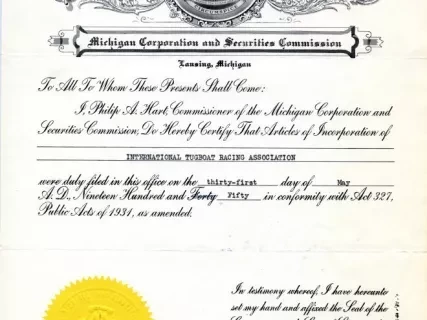 Michigan Corporation and Securities Commission
Lansing, Michigan
To All To Whom These Presents Shall Come:
I, Philip A. Hart, Commissioner of the Michigan Corporation and
Securities Commission, Do Hereby Certify That Articles of Incorporation of
INTERNATIONAL TUGBOAT RACING ASSOCIATION
were duly filed in this office on the thirty-first day of May
A.D., Nineteen Hundred and Forty Fifty in conformity with Act 327,
Public Acts of 1931, as amended.
In testimony whereof, I have hereunto
set my hand and affixed the Seal of the